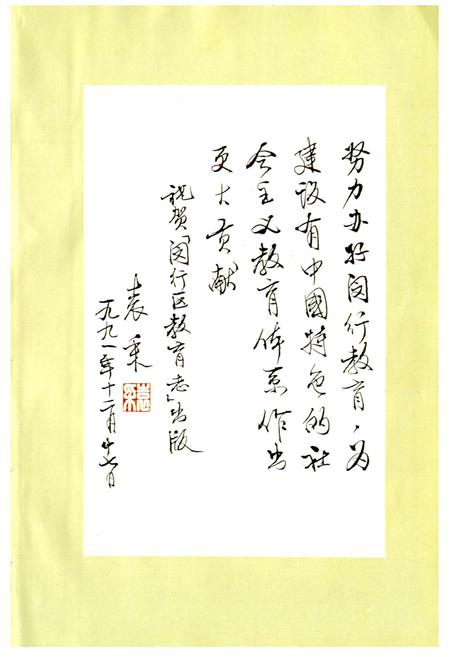 努力办好闵行教育，为
建设有中國特色的社
会主义教育体系作出
更大贡献
祝贺「闵行区教育志」出版
袁采
一九九一年十二月廿七日
袁采